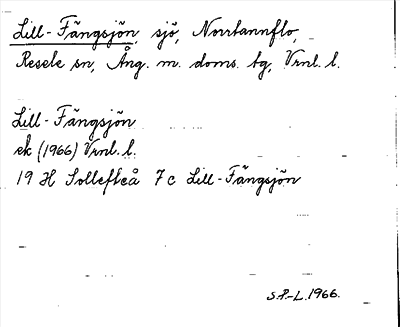 Lill-Fängsjön, sjö, Norrtannflo,
Resele sn, Ång. m. doms. tg, Vrnl. l.
Lill-Fängsjön
ek (1966) Vrnl. l.
19 H Sollefteå 7 c Lill-Fängsjön
S.P.-L. 1966.